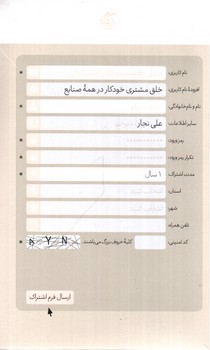 نام کاربری:
افزودهٔ نام کاربری: خلق مشتری خودکار در همهٔ صنایع
نام و نام خانوادگی:
سایر اطلاعات: علی نجار
رمز ورود:
تکرار رمز ورود:
مدت اشتراک: ۱ سال
استان:
شهر:
تلفن همراه:
کد امنیتی: کلیهٔ حروف بزرگ می‌باشند.
ارسال فرم اشتراک